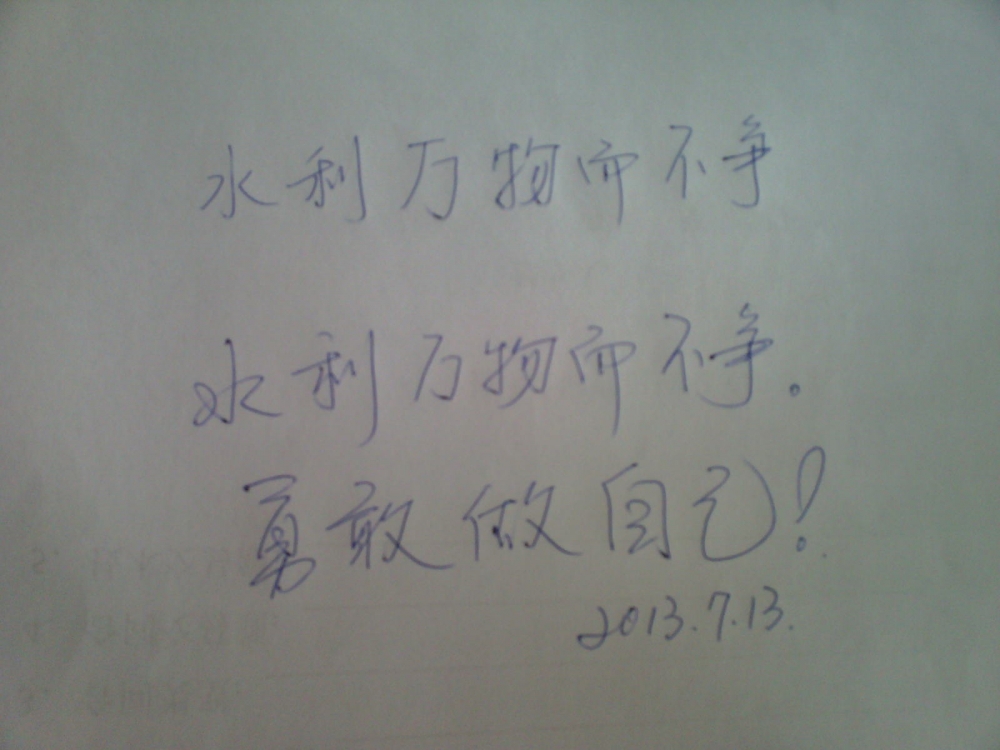 水利万物而不争
水利万物而不争.
勇敢做自己!
2013.7.13.